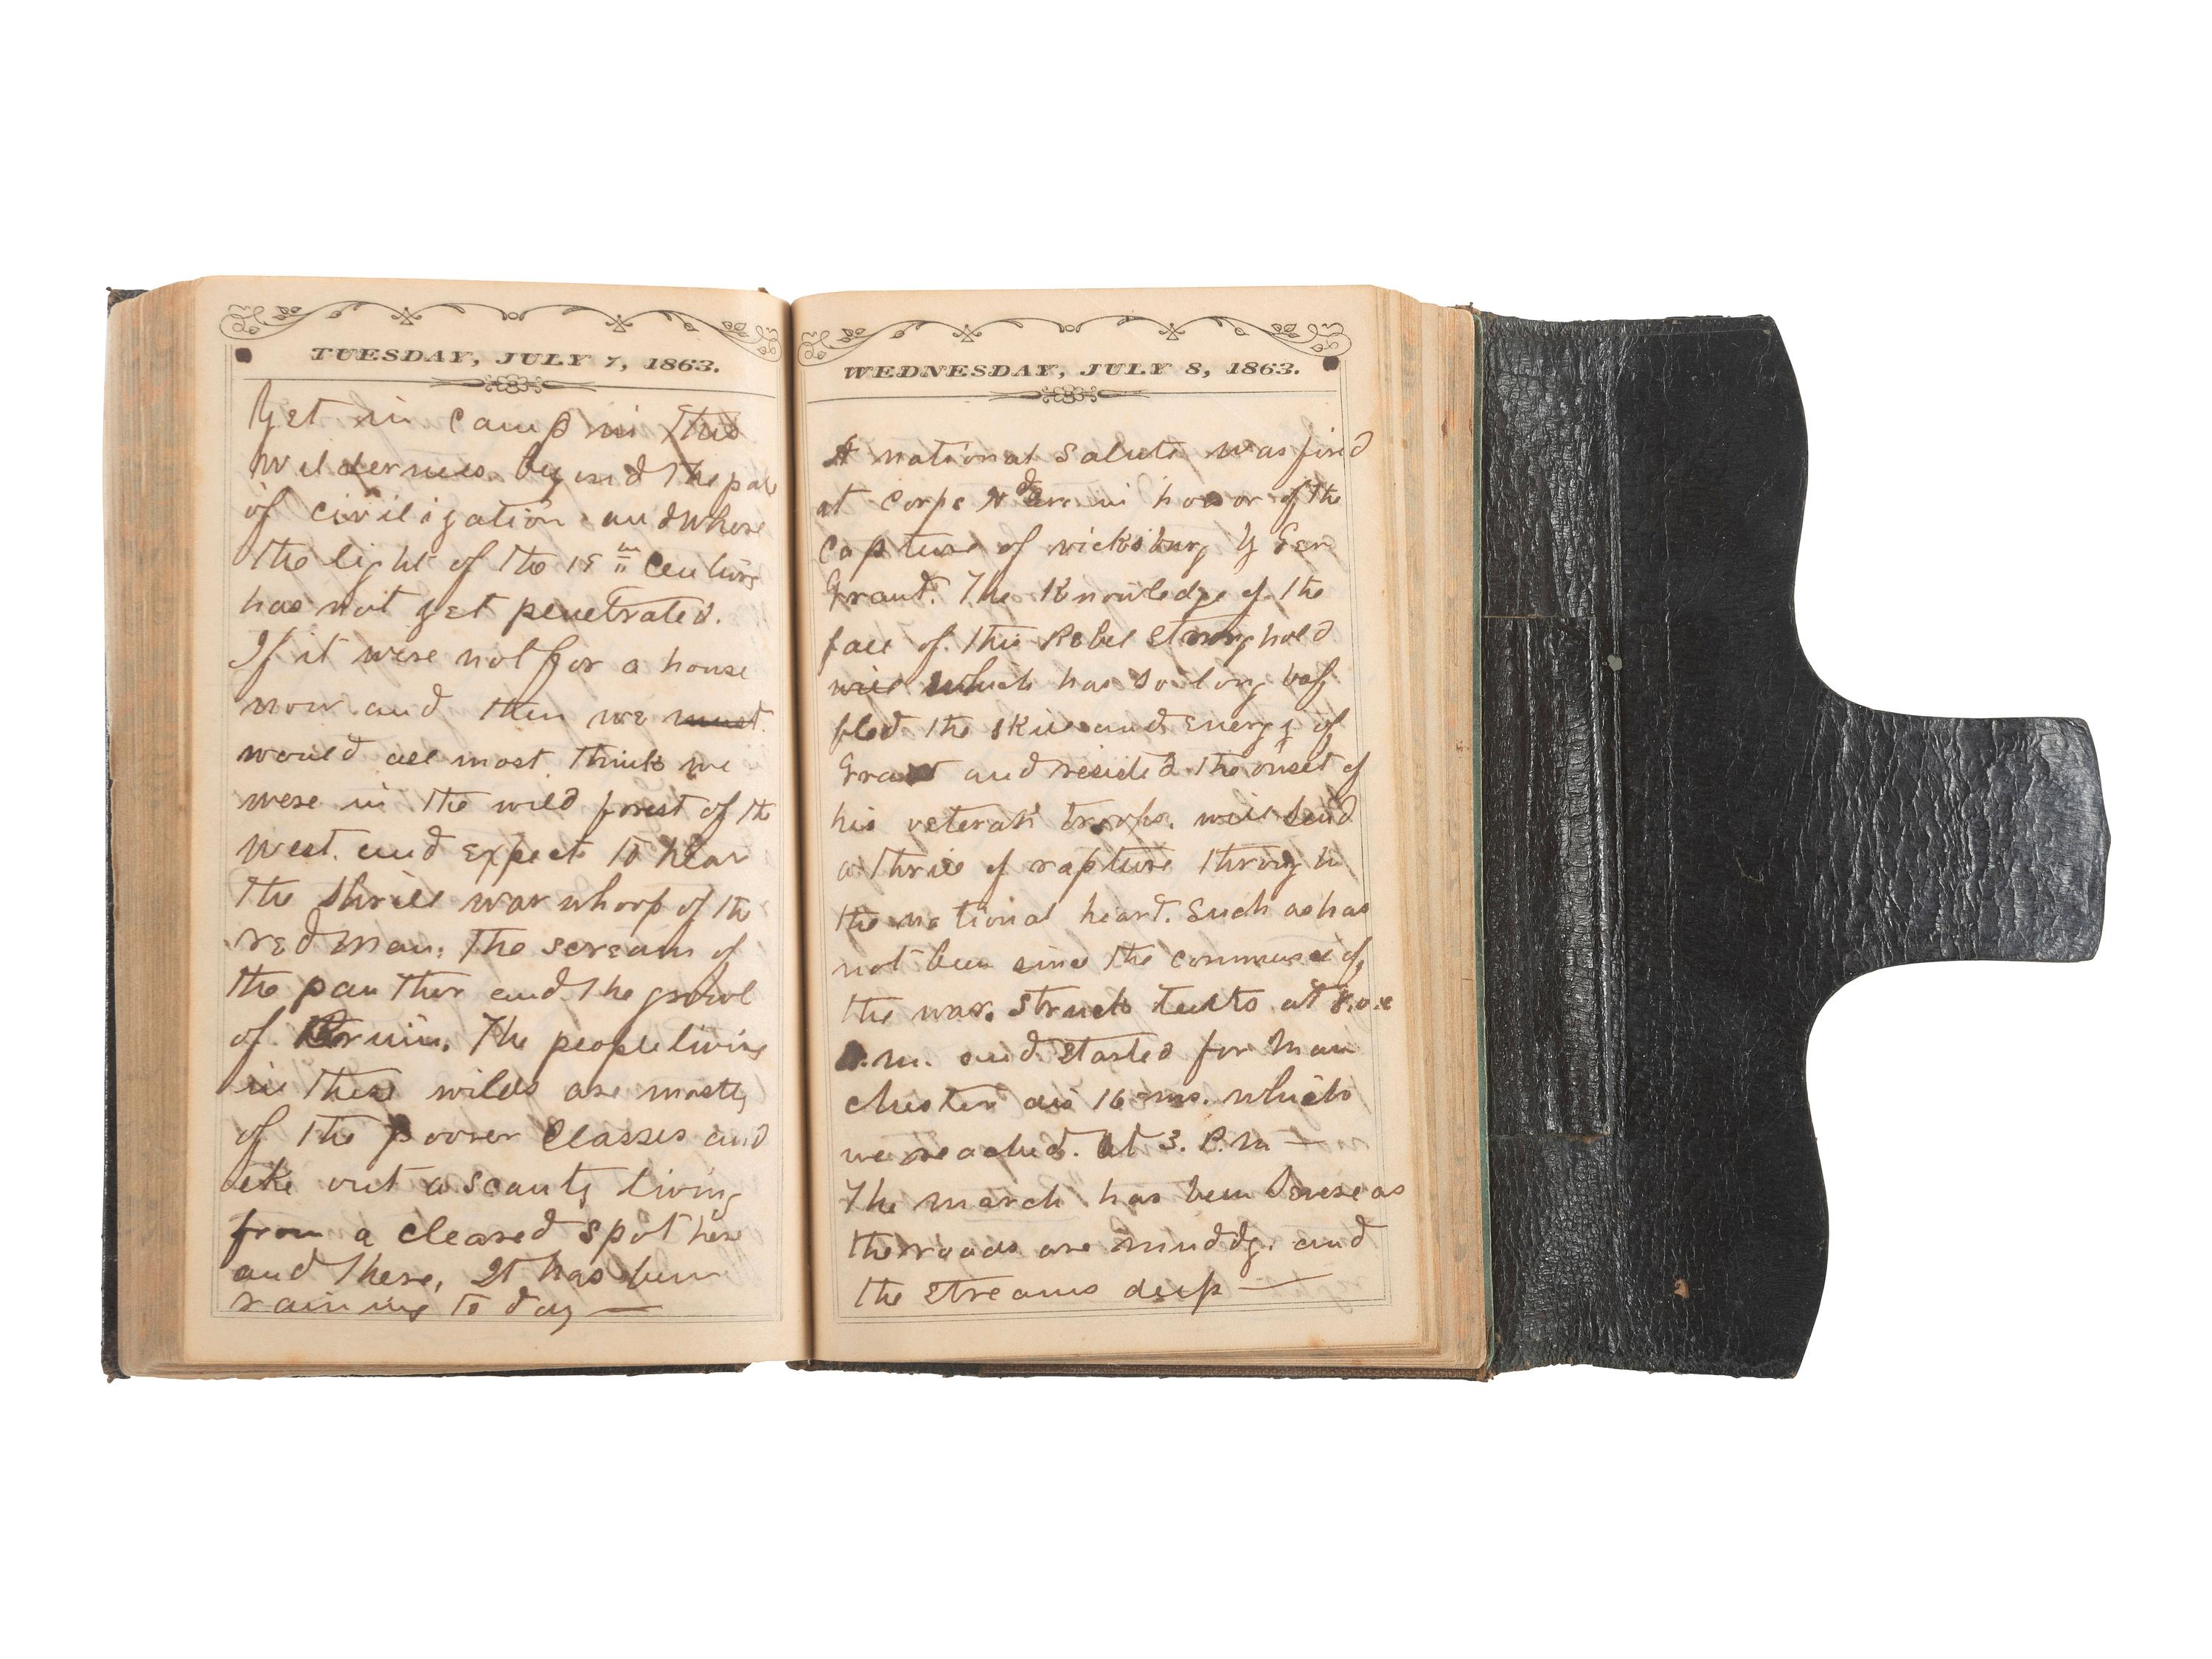 TUESDAY, JULY 7, 1863.
Yet in camp in this
Wilderness. beyond the pale
of civilization and where
the light of the 19th Century
has not yet penetrated.
If it were not for a house
now and then we must
would all most think we
were in the wild forest of the
West. and expect to hear
the shrill war whoop of the
red man: the scream of
the panther and the growl
of Bruin. The people living
in these wilds are mostly
of the poorer Classes and
eke out a scanty living
from a cleared spot here
and there, It has been
raining to day —
WEDNESDAY, JULY 8, 1863.
A national salute was fired
at Corps in honor of the
Capture of vicksburg by Gen
Grant. The knowledge of the
fall of this Rebel Stronghold
will which has so long baf
fled the skill and energy of
Grant and resisted the onset of
his veteran troops. will send
a thrill of rapture through
the national heart. Such as has
not been since the of
the war. Struck tents at 8.
A.M. and started for Man
chester 16 ms. which
we reached. At 3. P.M —
The march has been Severe as
the roads are muddy. and
the streams deep —